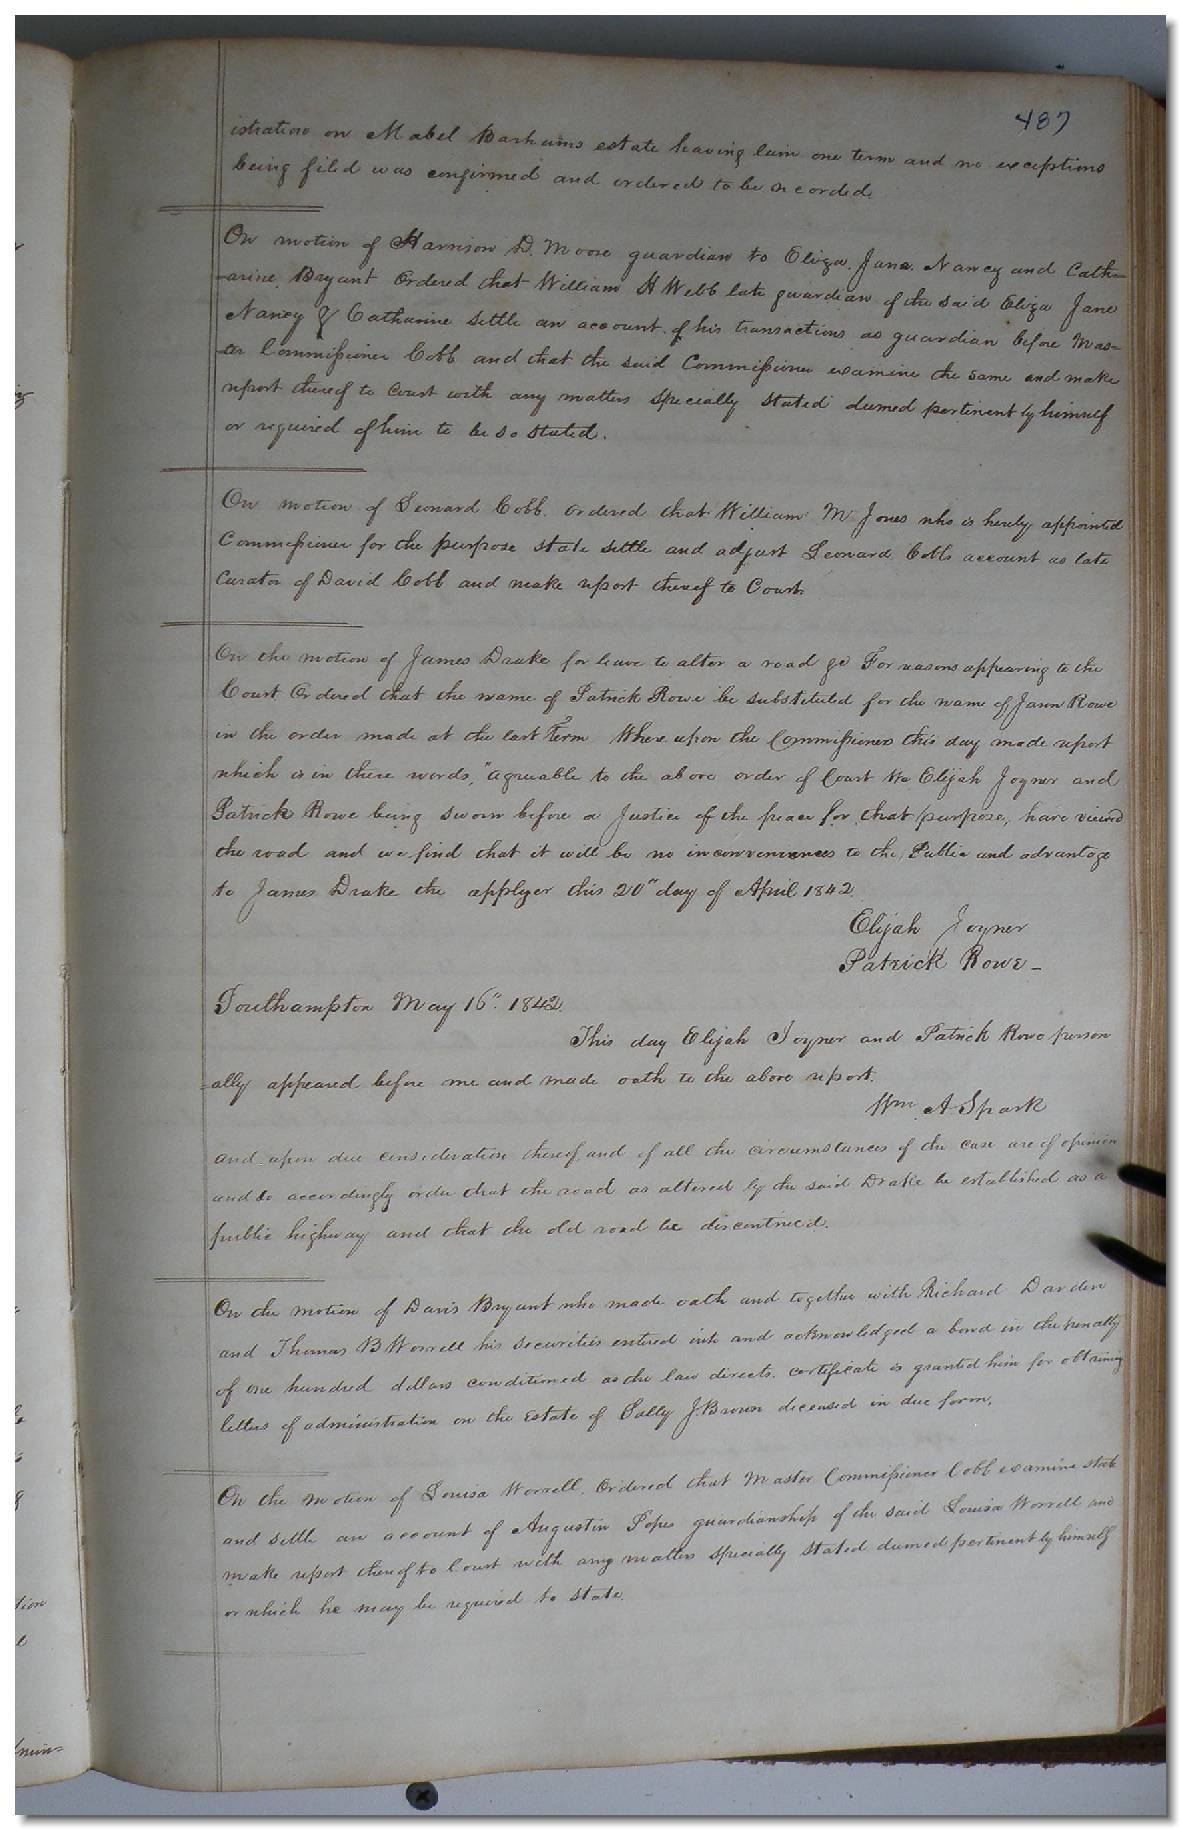 487
istration on Mabel Barhams estate having lain one term and no exceptions
being filed was confirmed and ordered to be recorded.
On motion of Harrison D. Moore guardian to Eliza. Jane. Nancy and Cath=
=arine. Bryant Ordered that William H Webb late guardian of the said Eliza Jane
Nancy & Catharine settle an account of his transactions as guardian before Mas=
=ter Commissioner Cobb and that the said Commissioner examine the same and make
report thereof to Court with any matters specially stated deemed pertinent by himself
or required of him to be so stated.
On motion of Leonard Cobb. ordered that William M Jones who is hereby appointed
Commissioner for the purpose state settle and adjust Leonard Cobbs account as late
Curator of David Cobb and make report thereof to Court.
On the motion of James Drake for leave to alter a road &c For reasons appearing to the
Court Ordered that the name of Patrick Rowe be substituted for the name of Rowe
in the order made at the last Term Where upon the Commissioners this day made report
which is in these words, "agreeable to the above order of Court We Elijah Joyner and
Patrick Rowe being sworn before a Justice of the peace for that purpose, have viewed
the road and we find that it will be no inconveniences to the Public and advantage
to James Drake the applyer this 20" day of April 1842.
Elijah Joyner
Patrick Rowe -
Southampton May 16" 1842.
This day Elijah Joyner and Patrick Rowe person
=ally appeared before me and made oath to the above report.
Wm A Spark
and upon due consideration thereof and of all the circumstances of the case are of opinion
and do accordingly order that the road as altered by the said Drake be established as a
public highway and that the old road be discontined.
On the motion of Davis Bryant who made oath and together with Richard Darden
and Thomas B Worrell his securities entered into and acknowledged a bond in the penalty
of one hundred dollars conditioned as the law directs. certificate is granted him for obtaining
letters of administration on the Estate of Sally J. Brown deceased in due form.
On the motion of Louisa Worrell. Ordered that Master Commissioner Cobb examine state
and settle an account of Augustin Popes guardianship of the said Louisa Worrell and
make report thereof to Court with any matters specially stated deemed pertinent by himself
or which he may be required to state.